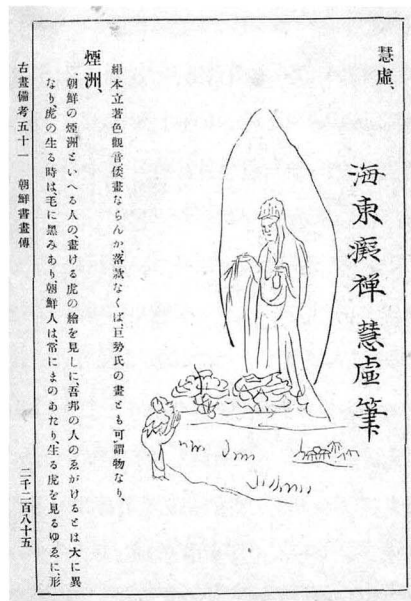 慧虛、
海東癡禪慧虛筆
絹本立著色觀音倭畫ならんか、落款なくば、巨勢氏の畫とも可謂物なり、
煙洲、
朝鮮の煙洲といへる人の、畫ける虎の繪を見しに、吾邦の人のゑがけるとは大に異
なり、虎の生る時は、毛に黑みあり朝鮮人は、常にまのあたり、生る虎を見るゆゑに、形
古畫備考五十一 朝鮮書畫傳
二千二百八十五